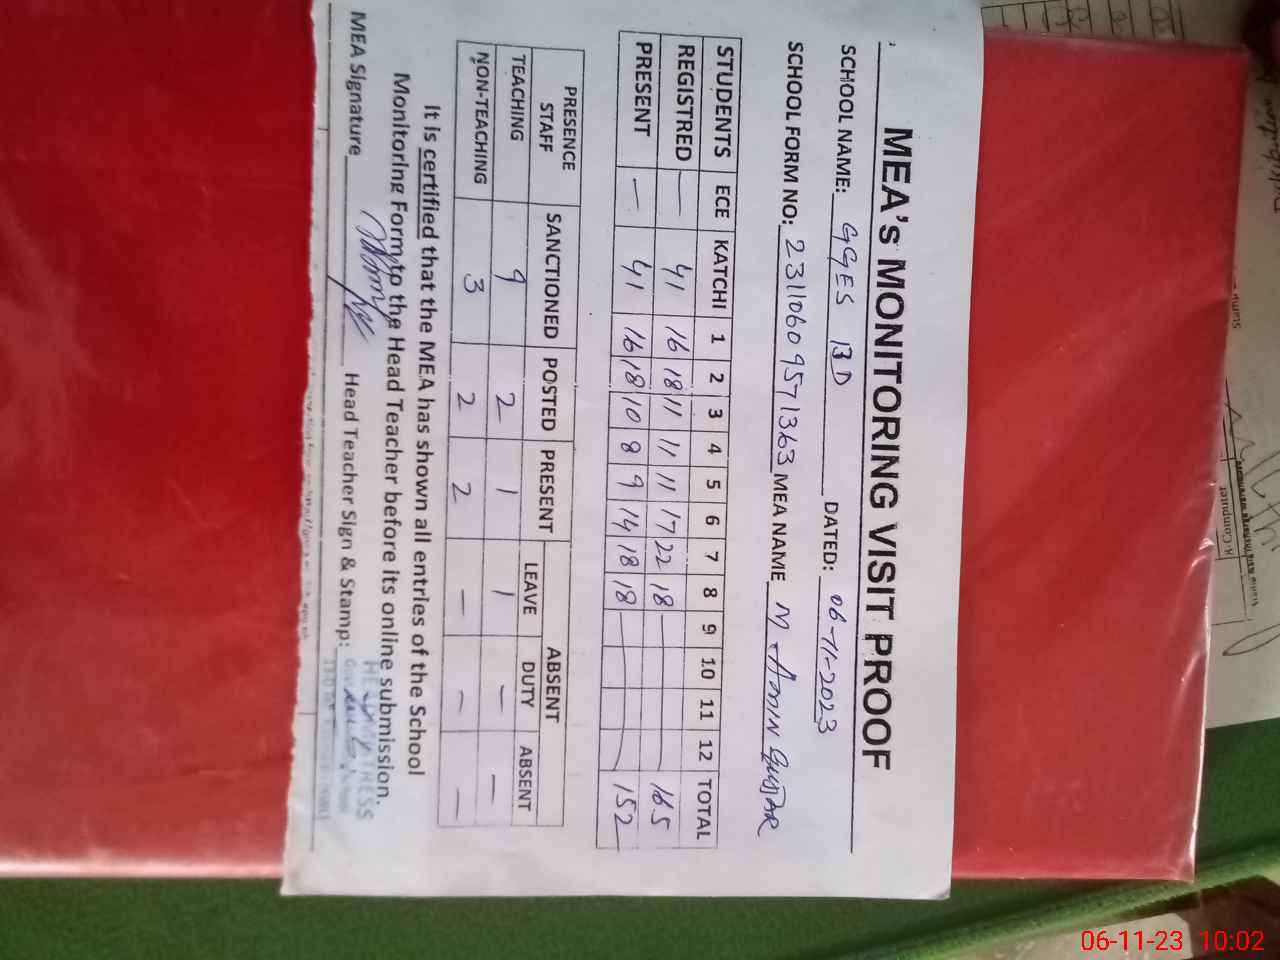 MEA's MONITORING VISIT PROOF
SCHOOL NAME: GGES 13D DATED: 06-11-2023
SCHOOL FORM NO: 23110609571363 MEA NAME M Amin Gujjar
STUDENTS ECE KATCHI 1 2 3 4 5 6 7 8 9 10 11 12 TOTAL
REGISTRED — 41 16 18 11 11 11 17 22 18 — 165
PRESENT — 41 16 18 10 8 9 14 18 18 — 152
PRESENCE STAFF SANCTIONED POSTED PRESENT ABSENT
LEAVE DUTY ABSENT
TEACHING 9 2 1 1 — —
NON-TEACHING 3 2 2 — — —
It is certified that the MEA has shown all entries of the School
Monitoring Form to the Head Teacher before its online submission.
MEA Signature Head Teacher Sign & Stamp:
Computer
06-11-23 10:02